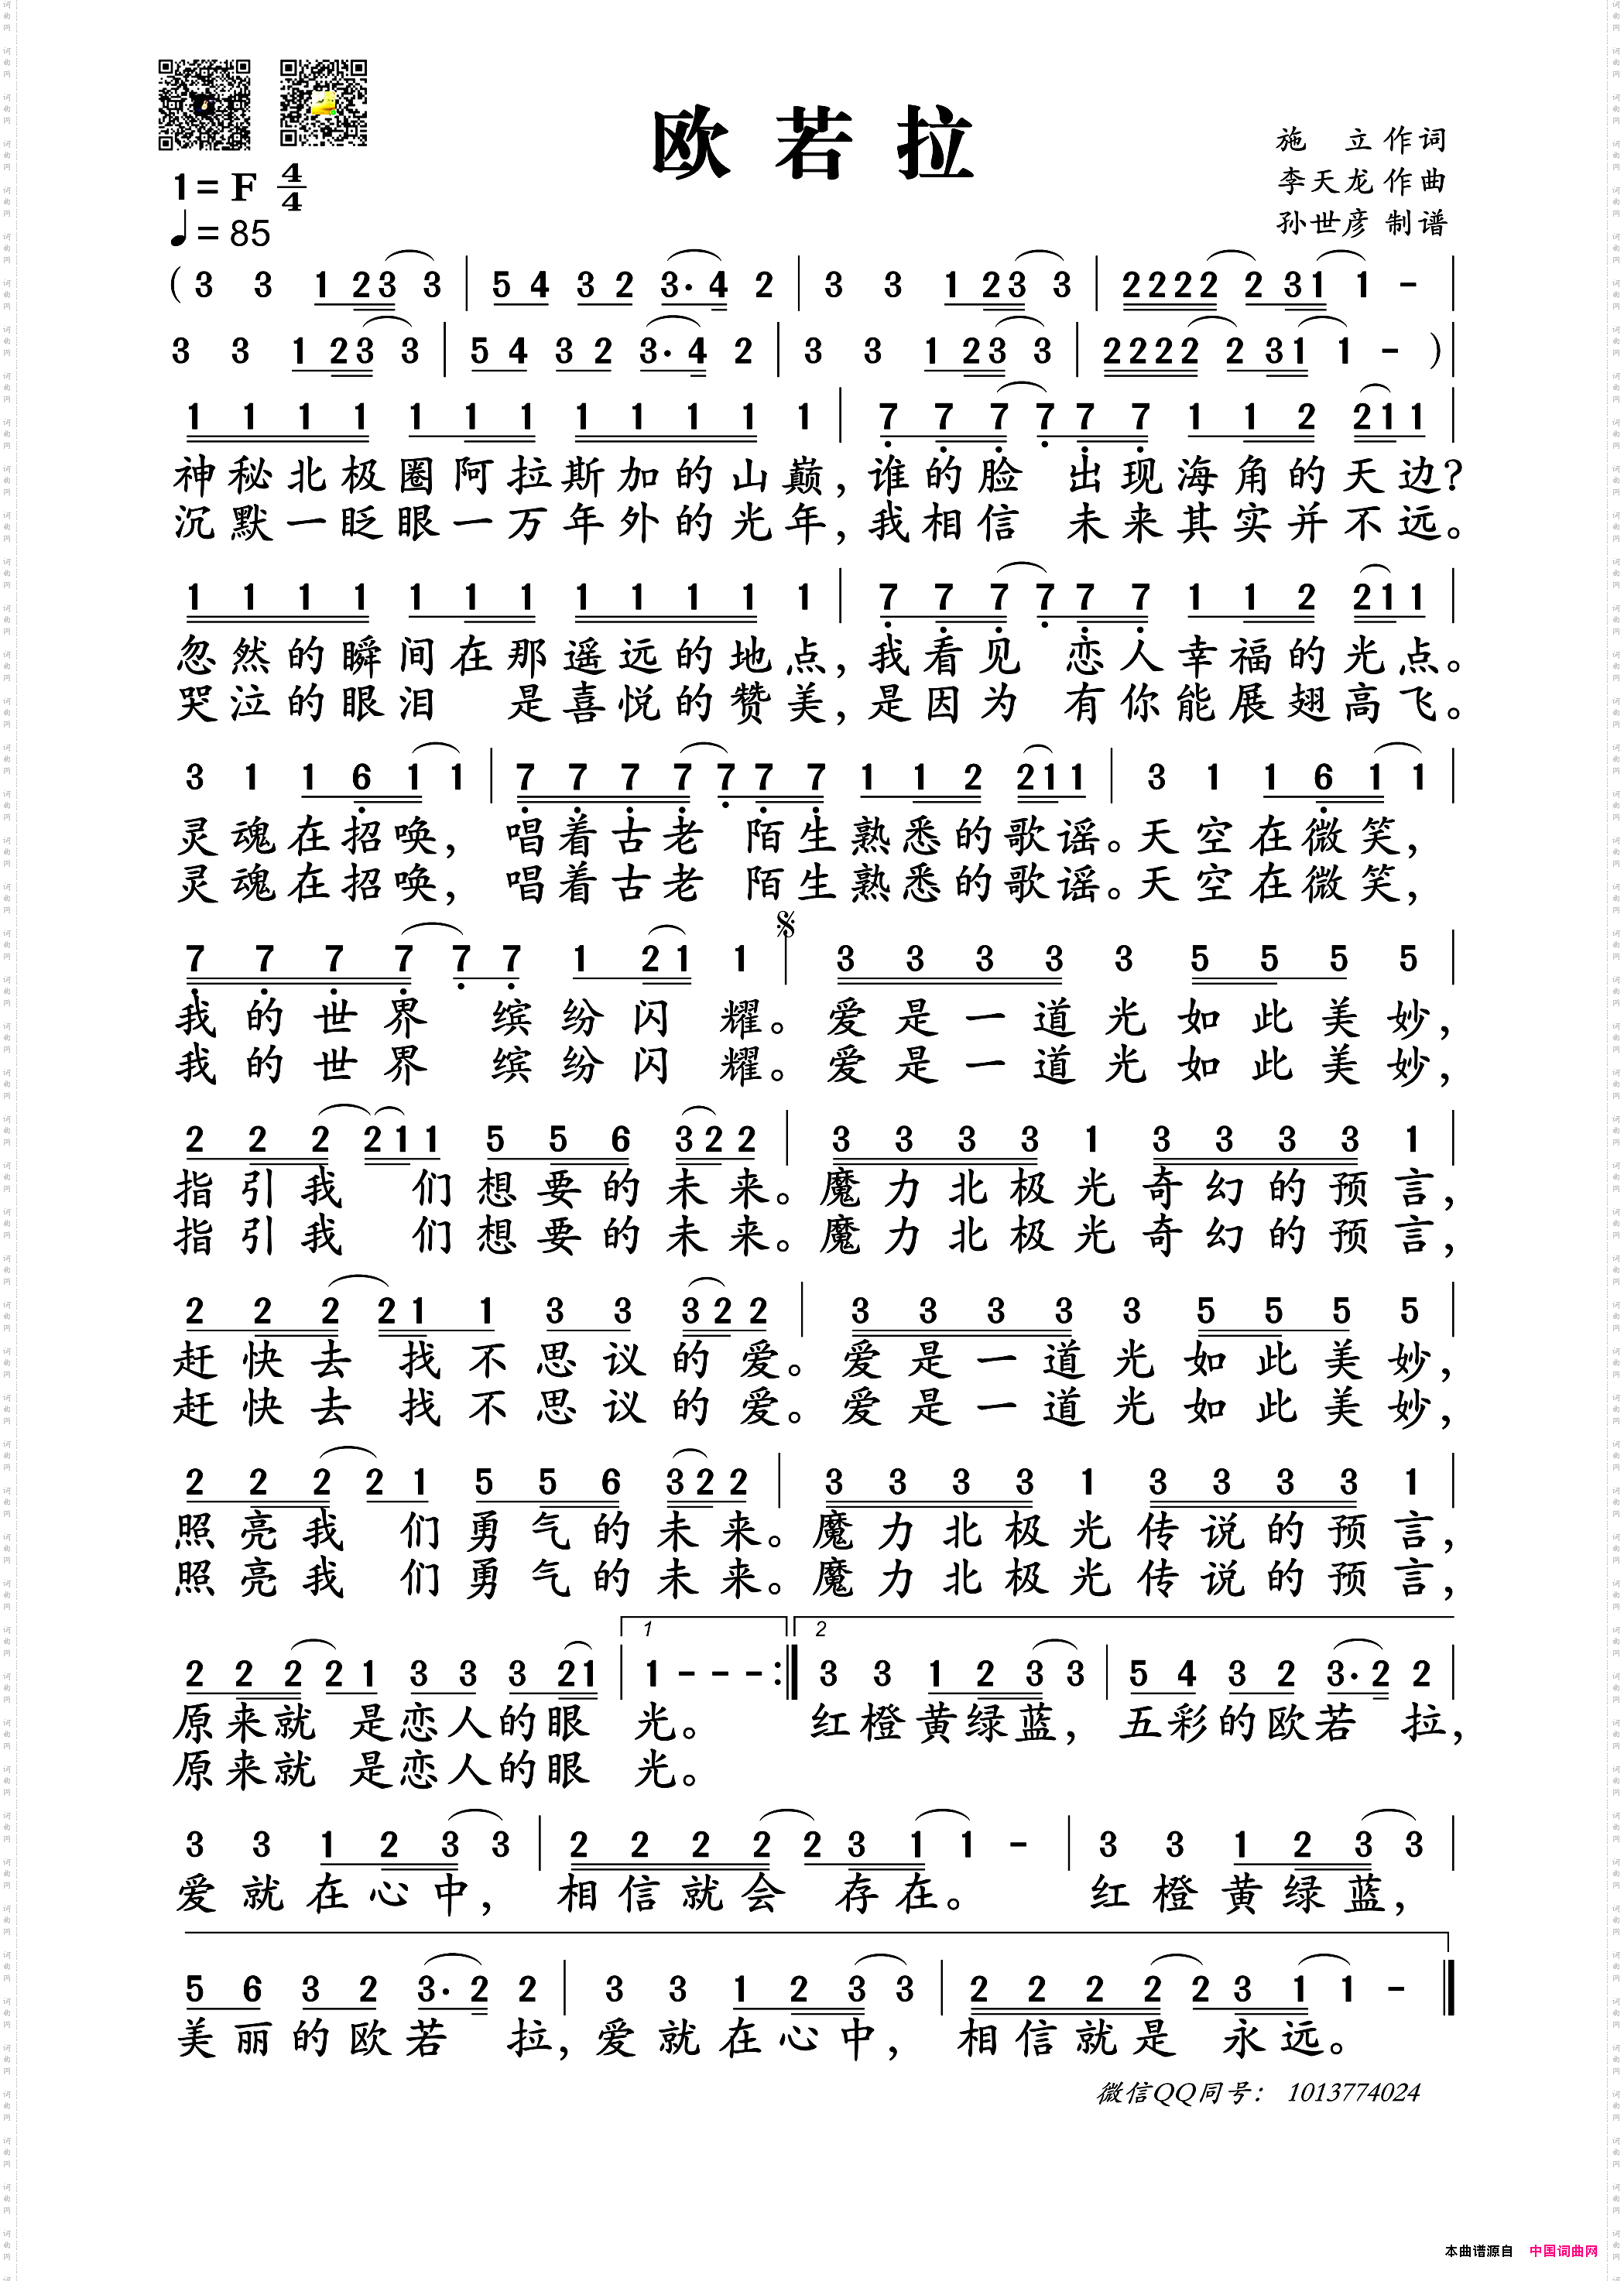 欧若拉
施 立 作词
李天龙 作曲
孙世彦 制谱
1= F 4/4
♩= 85
( 3 3 1 2 3 3 | 5 4 3 2 3· 4 2 | 3 3 1 2 3 3 | 2 2 2 2 2 3 1 1 - |
3 3 1 2 3 3 | 5 4 3 2 3· 4 2 | 3 3 1 2 3 3 | 2 2 2 2 2 3 1 1 - ) |
1 1 1 1 1 1 1 1 1 1 1 1 | 7 7 7 7 7 7 1 1 2 2 1 1 |
神秘北极圈阿拉斯加的山巅，谁的脸 出现海角的天边？
沉默一眨眼一万年外的光年，我相信 未来其实并不远。
1 1 1 1 1 1 1 1 1 1 1 1 | 7 7 7 7 7 7 1 1 2 2 1 1 |
忽然的瞬间在那遥远的地点，我看见 恋人幸福的光点。
哭泣的眼泪 是喜悦的赞美，是因为 有你能展翅高飞。
3 1 1 6 1 1 | 7 7 7 7 7 7 7 1 1 2 2 1 1 | 3 1 1 6 1 1 |
灵魂在招唤， 唱着古老 陌生熟悉的歌谣。天空在微笑，
灵魂在招唤， 唱着古老 陌生熟悉的歌谣。天空在微笑，
7 7 7 7 7 7 1 2 1 1 | 3 3 3 3 3 5 5 5 5 |
我的世界 缤纷闪 耀。爱是一道光如此美妙，
我的世界 缤纷闪 耀。爱是一道光如此美妙，
2 2 2 2 1 1 5 5 6 3 2 2 | 3 3 3 3 1 3 3 3 3 1 |
指引我 们想要的未来。魔力北极光奇幻的预言，
指引我 们想要的未来。魔力北极光奇幻的预言，
2 2 2 2 1 1 3 3 3 2 2 | 3 3 3 3 3 5 5 5 5 |
赶快去 找不思议的爱。爱是一道光如此美妙，
赶快去 找不思议的爱。爱是一道光如此美妙，
2 2 2 2 1 5 5 6 3 2 2 | 3 3 3 3 1 3 3 3 3 1 |
照亮我 们勇气的未来。魔力北极光传说的预言，
照亮我 们勇气的未来。魔力北极光传说的预言，
1 2
2 2 2 2 1 3 3 3 2 1 | 1 - - - :| 3 3 1 2 3 3 | 5 4 3 2 3· 2 2 |
原来就 是恋人的眼 光。 红橙黄绿蓝，五彩的欧若 拉，
原来就 是恋人的眼 光。
3 3 1 2 3 3 | 2 2 2 2 2 3 1 1 - | 3 3 1 2 3 3 |
爱就在心中， 相信就会 存在。 红橙黄绿蓝，
5 6 3 2 3· 2 2 | 3 3 1 2 3 3 | 2 2 2 2 2 3 1 1 - |
美丽的欧若 拉，爱就在心中， 相信就是 永远。
微信QQ同号： 1013774024
本曲谱源自 中国词曲网